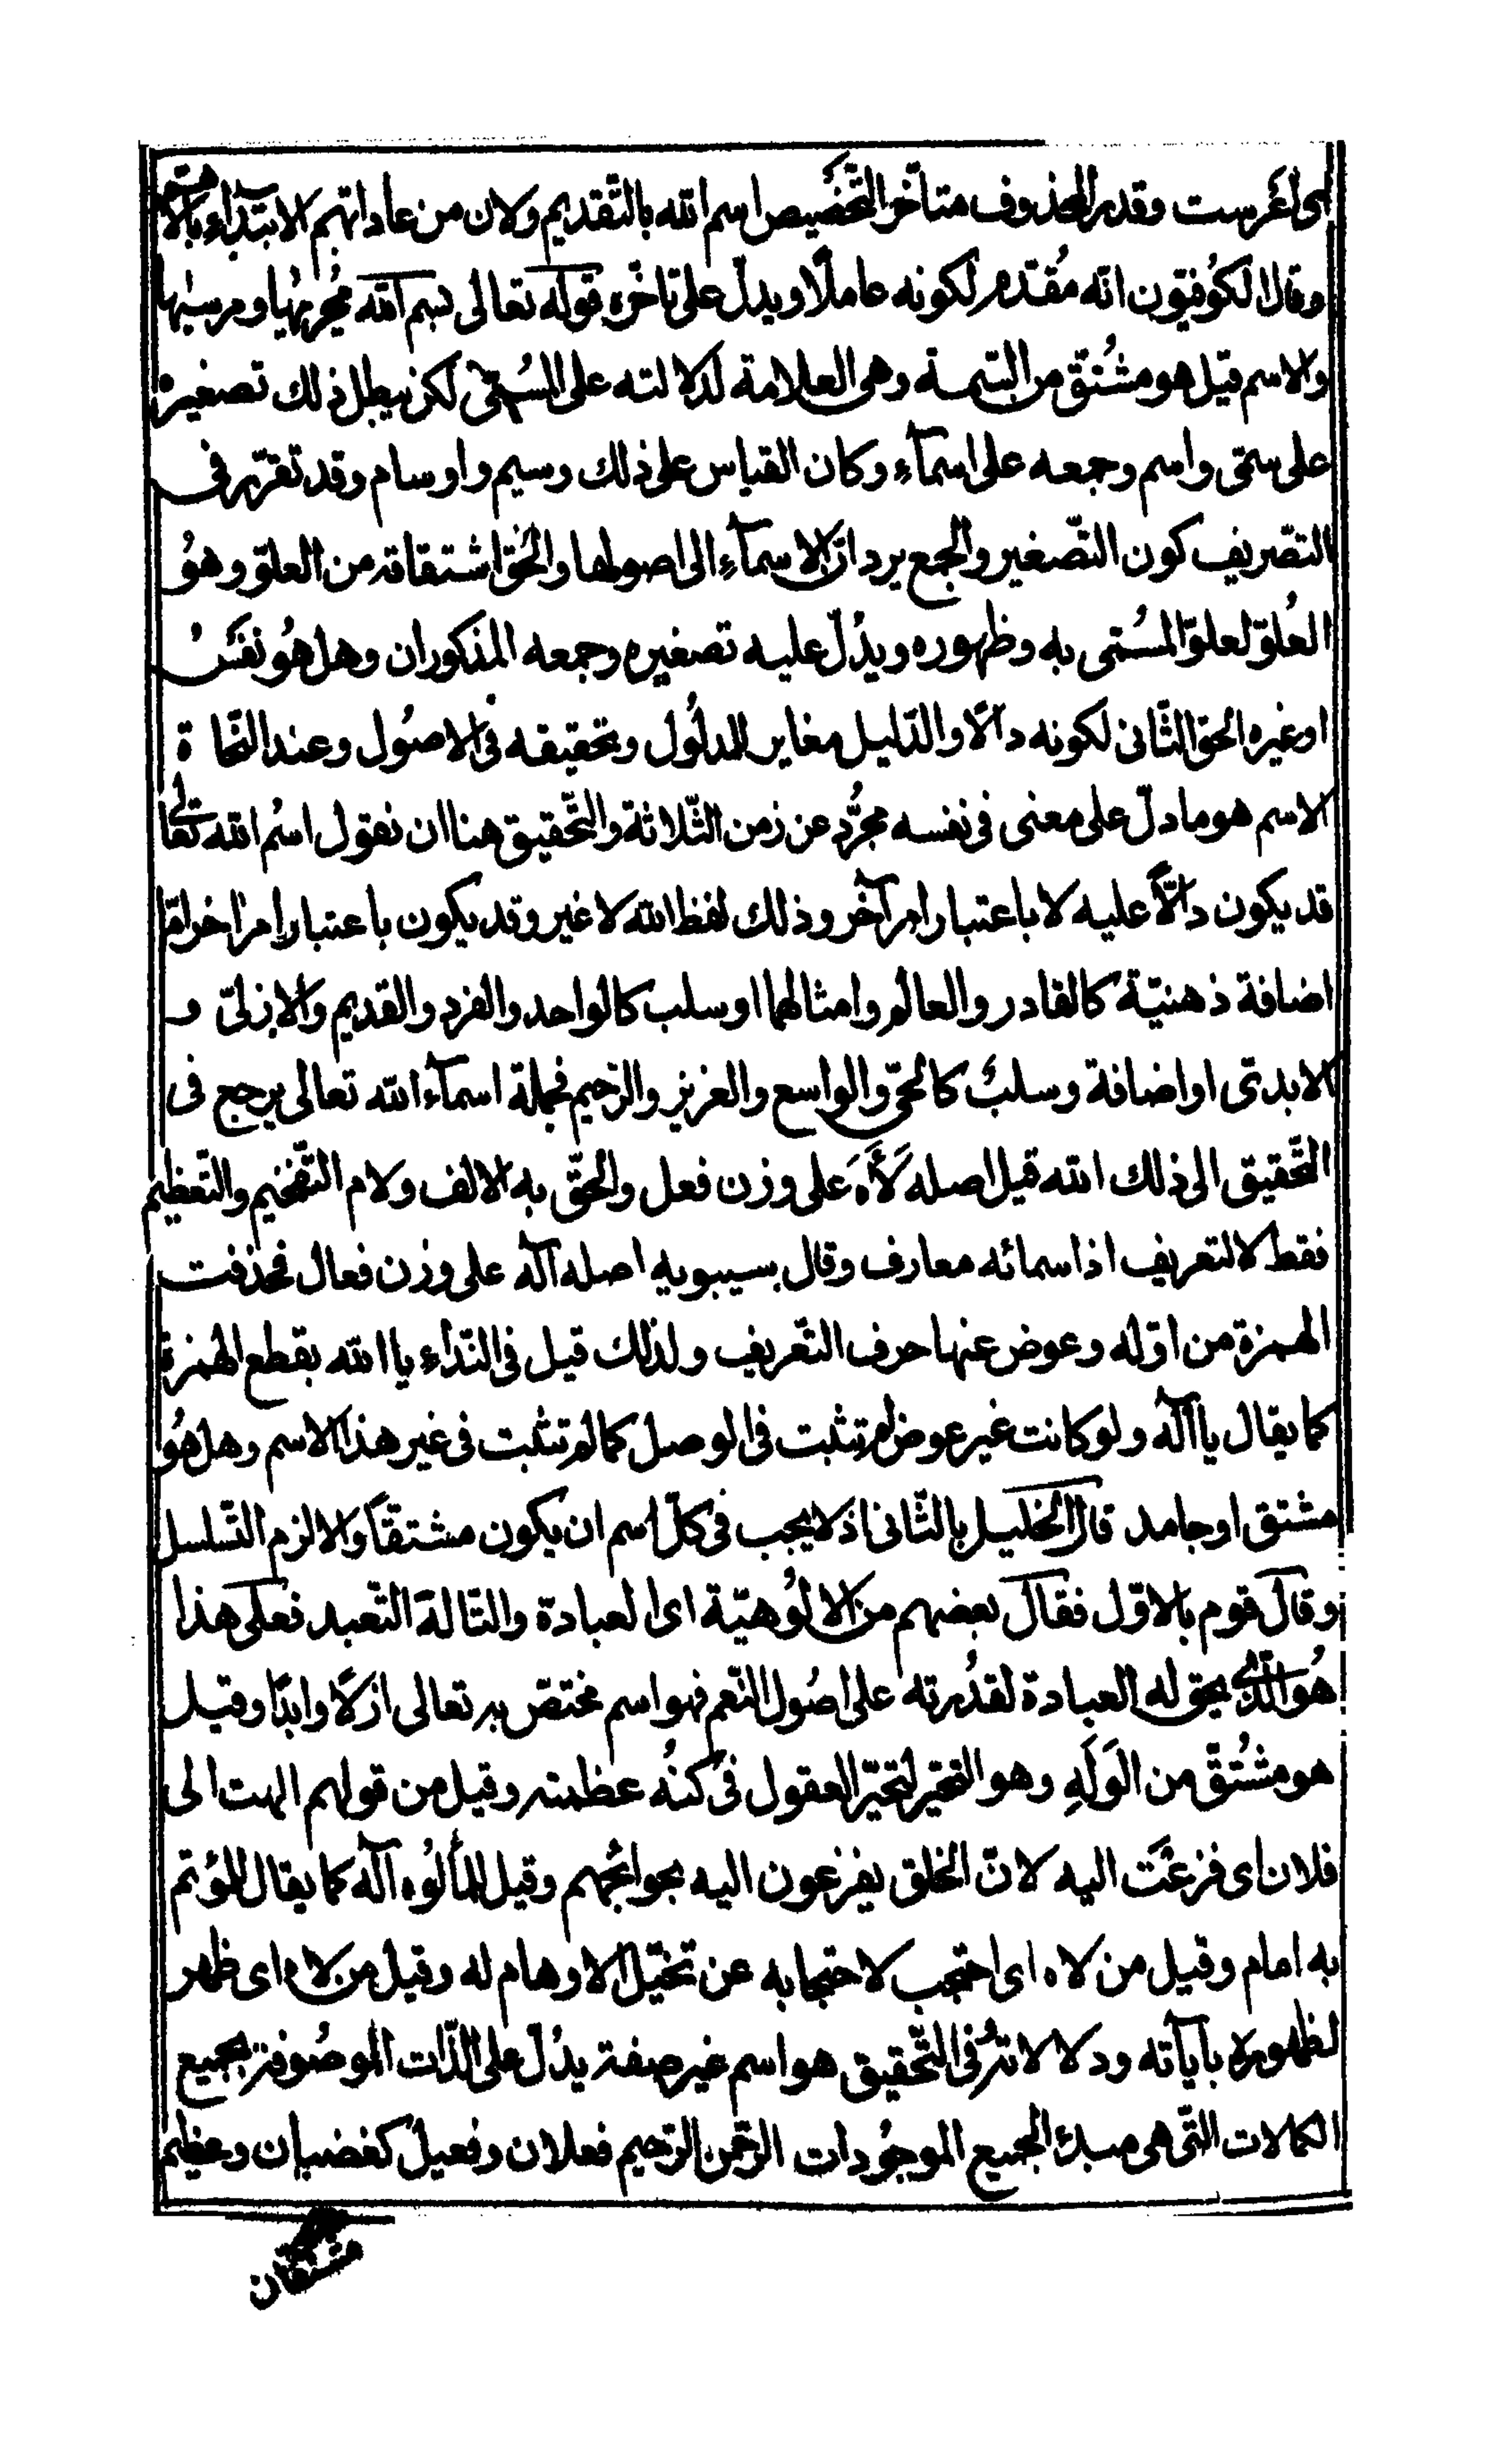 اى اغرست وقدر المحذوف متأخرا لتخصيص اسم الله بالتقديم ولان من عاداتهم الابتداء بالاهم
وقال الكوفيون انه مُقدم لكونه عاملًا ويدلّ على تاخره قوله تعالى بسم الله مجريها ومرسيها
والاسم قيل هو مشتق من السمة وهى العلامة لدلالته على المسمى لكن يبطل ذلك تصغيره
على سمى واسم وجمعه على اسمآء وكان القياس على ذلك وسيم واوسام وقد تقرر فى
التصريف كون التّصغير والجمع يردان الاسمآء الى اصولها والحق اشتقاقه من العلوّ وهوُ
العُلوّ لعلوّ المسُمى به وظهوره ويدُلّ عليه تصغيره وجمعه المذكوران وهل هُو نفسُ
او غيره الحق الثّانى لكونه دالًّا والدّليل مغاير للمدلُول وتحقيقه فى الاصُول وعند النّحاة
الاسم هو ما دلّ على معنى فى نفسه مجرُّد عن زمن الثّلاثة والتّحقيق هنا ان نقول اسُم الله تعالى
قد يكون دالًّا عليه لا باعتبار امر آخر وذلك لفظ الله لا غير وقد يكون باعتبار امر اخر امّا
اضافة ذهنيّة كالقادر والعالم وامثالهما او سلب كالواحد والفرد والقديم والازلىّ و
الابدىّ او اضافة وسلبُ كالحىّ والواسع والعزيز والرّحيم فجملة اسمآء الله تعالى يرجع فى
التّحقيق الى ذلك الله قيل اصله لَأَهَ على وزن فعل والحقّ به الالف ولام التّفخيم والتّعظيم
فقط لا لتعريف اذ اسمائه معارف وقال سيبويه اصله آله على وزن فعال فحذفت
الهمزة من اوّله وعوض عنها حرف التّعريف ولذلك قيل فى النّداء يا الله بقطع الهمزة
كما يقال يا آله ولو كانت غير عوض لم تثبت فى الوصل كما لم تثبت فى غير هذا الاسم وهل هُو
مشتق او جامد قال الخليل بالثّانى اذ لا يجب فى كلّ اسم ان يكون مشتقًا والا لزم التّسلسل
وقال قوم بالاوّل فقال بعضهم من الالُوهيّة اى العبادة والتّالة التّعبد فعلى هذا
هُو الّذى يحق له العبادة لقدُرته على اصُول النّعم فهو اسم مختصّ به تعالى ازلًا وابدًا وقيل
هو مشُتقّ من الوَلَهِ وهو التحيّر لتحيّر العقول فى كنُه عظمته وقيل من قولهم الهت الى
فلان اى فزعَت اليه لانّ الخلق يفزعون اليه بحوائجهم وقيل للمألُوه آله كما يقال للمؤتم
به امام وقيل من لاه اى احتجب لاحتجابه عن تخيّل الاوهام له وقيل من لاه اى ظهر
لظهوره بآياته ودلالاته وفى التّحقيق هو اسم غير صفة يدُلّ على الذّات الموصُوفة بجميع
الكمالات التّى هى مبدء لجميع الموجُودات الرّحمن الرّحيم فعلان وفعيل كغضبان وعظيم
مشتقان